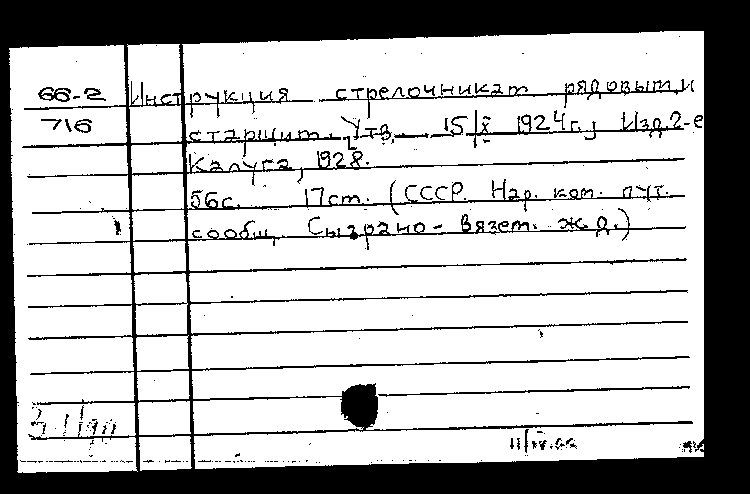 66-2 Инструкция стрелочникам рядовым и
716 старшим. Утв. 15/X 1924г., Изд. 2-е
Калуга, 1928.
56с. 17см. (СССР. Нар. ком. пут.
сообщ. Сызрано-Вязем. ж.д.)
3-1/90
11/IV.66